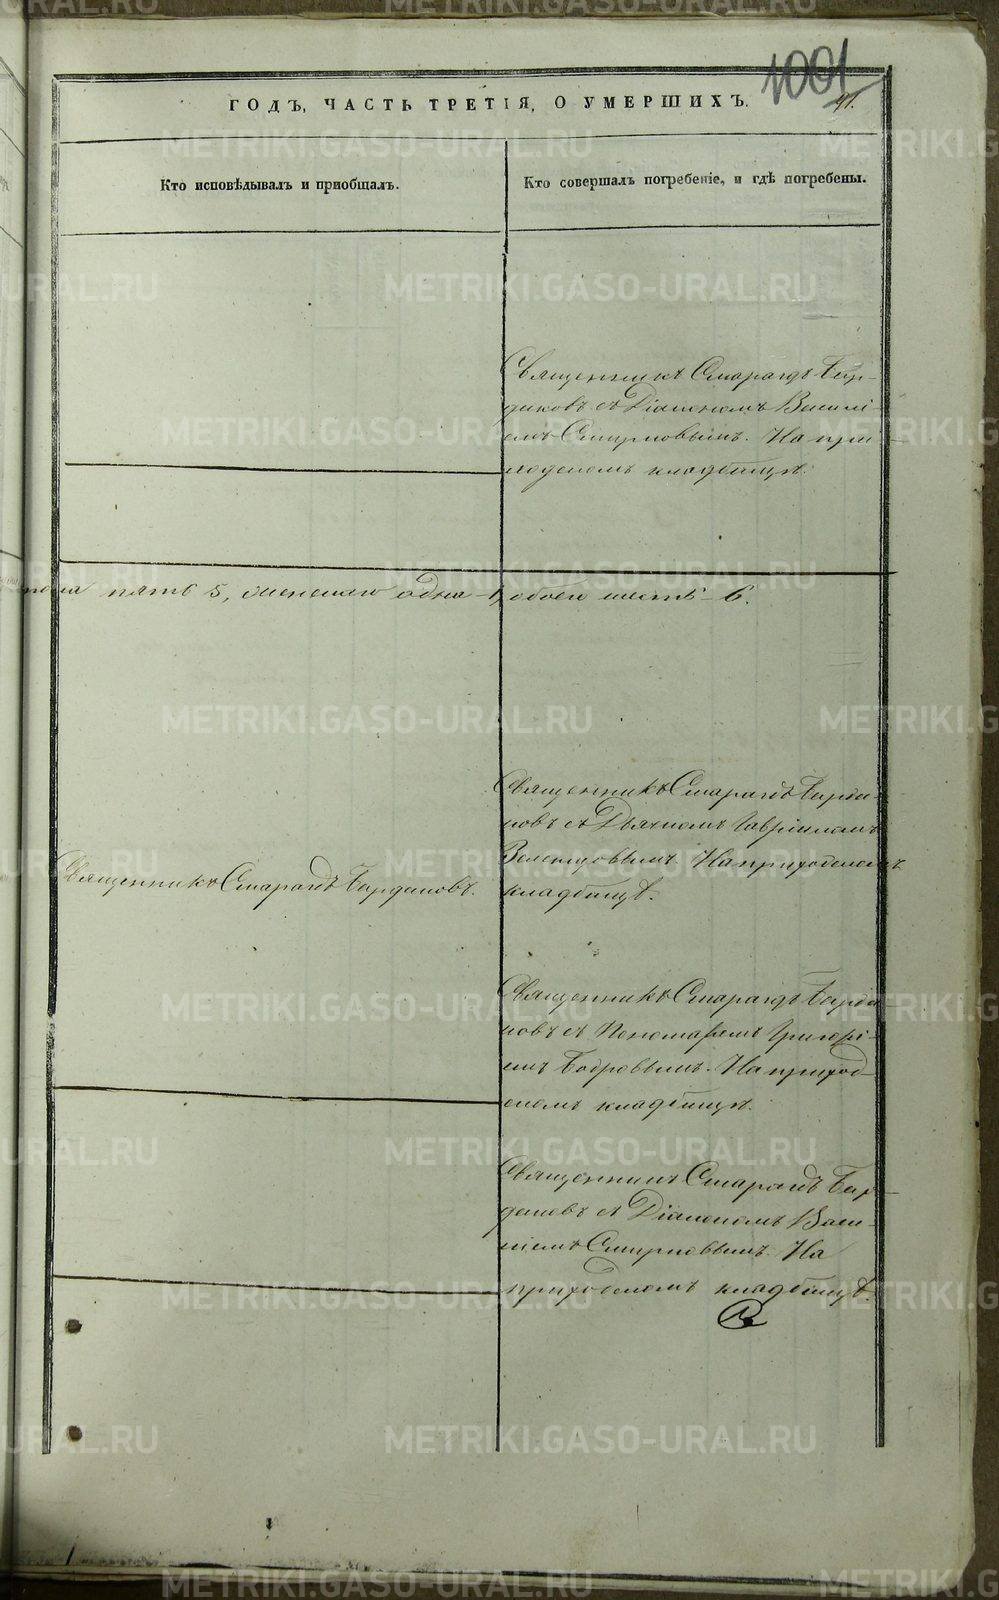 1001
41.
ГОДЪ, ЧАСТЬ ТРЕТІЯ, О УМЕРШИХЪ.
Кто исповѣдывалъ и пріобщалъ.
Кто совершалъ погребеніе, и гдѣ погребены.
Священникъ Смарагдъ Бар-
дуковъ съ Діакономъ Василі-
емъ Смирновымъ. На при-
ходскомъ кладбищѣ.
пола пять 5, женскаго одна - 1, обоего шесть - 6.
Священникъ Смарагдъ
съ Дьячкомъ Гавріиломъ
На приходскомъ
кладбищѣ.
Священникъ Смарагдъ
Священникъ Смарагдъ
съ Пономаремъ Григорі-
емъ Бобровымъ. На приход-
скомъ кладбищѣ.
Священникъ Смарагдъ
съ Діакономъ Васи-
ліемъ Смирновымъ. На
приходскомъ кладбищѣ.
METRIKI.GASO-URAL.RU